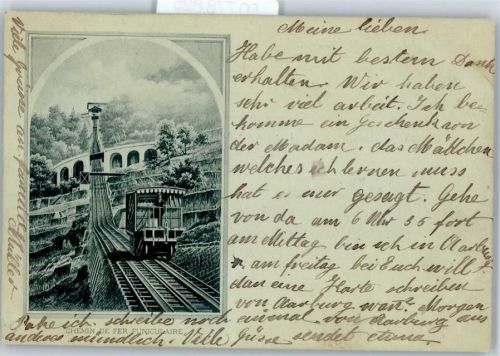 Meine lieben.
Habe mit bestem Dank
erhalten. Wir haben
sehr viel arbeit. Ich be-
komme ein Geschenk von
der Madam. das Mädchen
welches ich lernen muss
hat es mir gesagt. Gehe
von da am 6 Uhr 36 fort
am Mittag bin ich in Aarburg
am freitag bei Euch will
dan eine Karte schreiben
von Aarburg wan? Morgen
Pake ich. schreibe noch einmal von Aarburg aus
anderes mündlich Ville Grüsse sendet
Viele Grüsse an familie
Müller
CHEMIN DE FER FUNICULAIRE